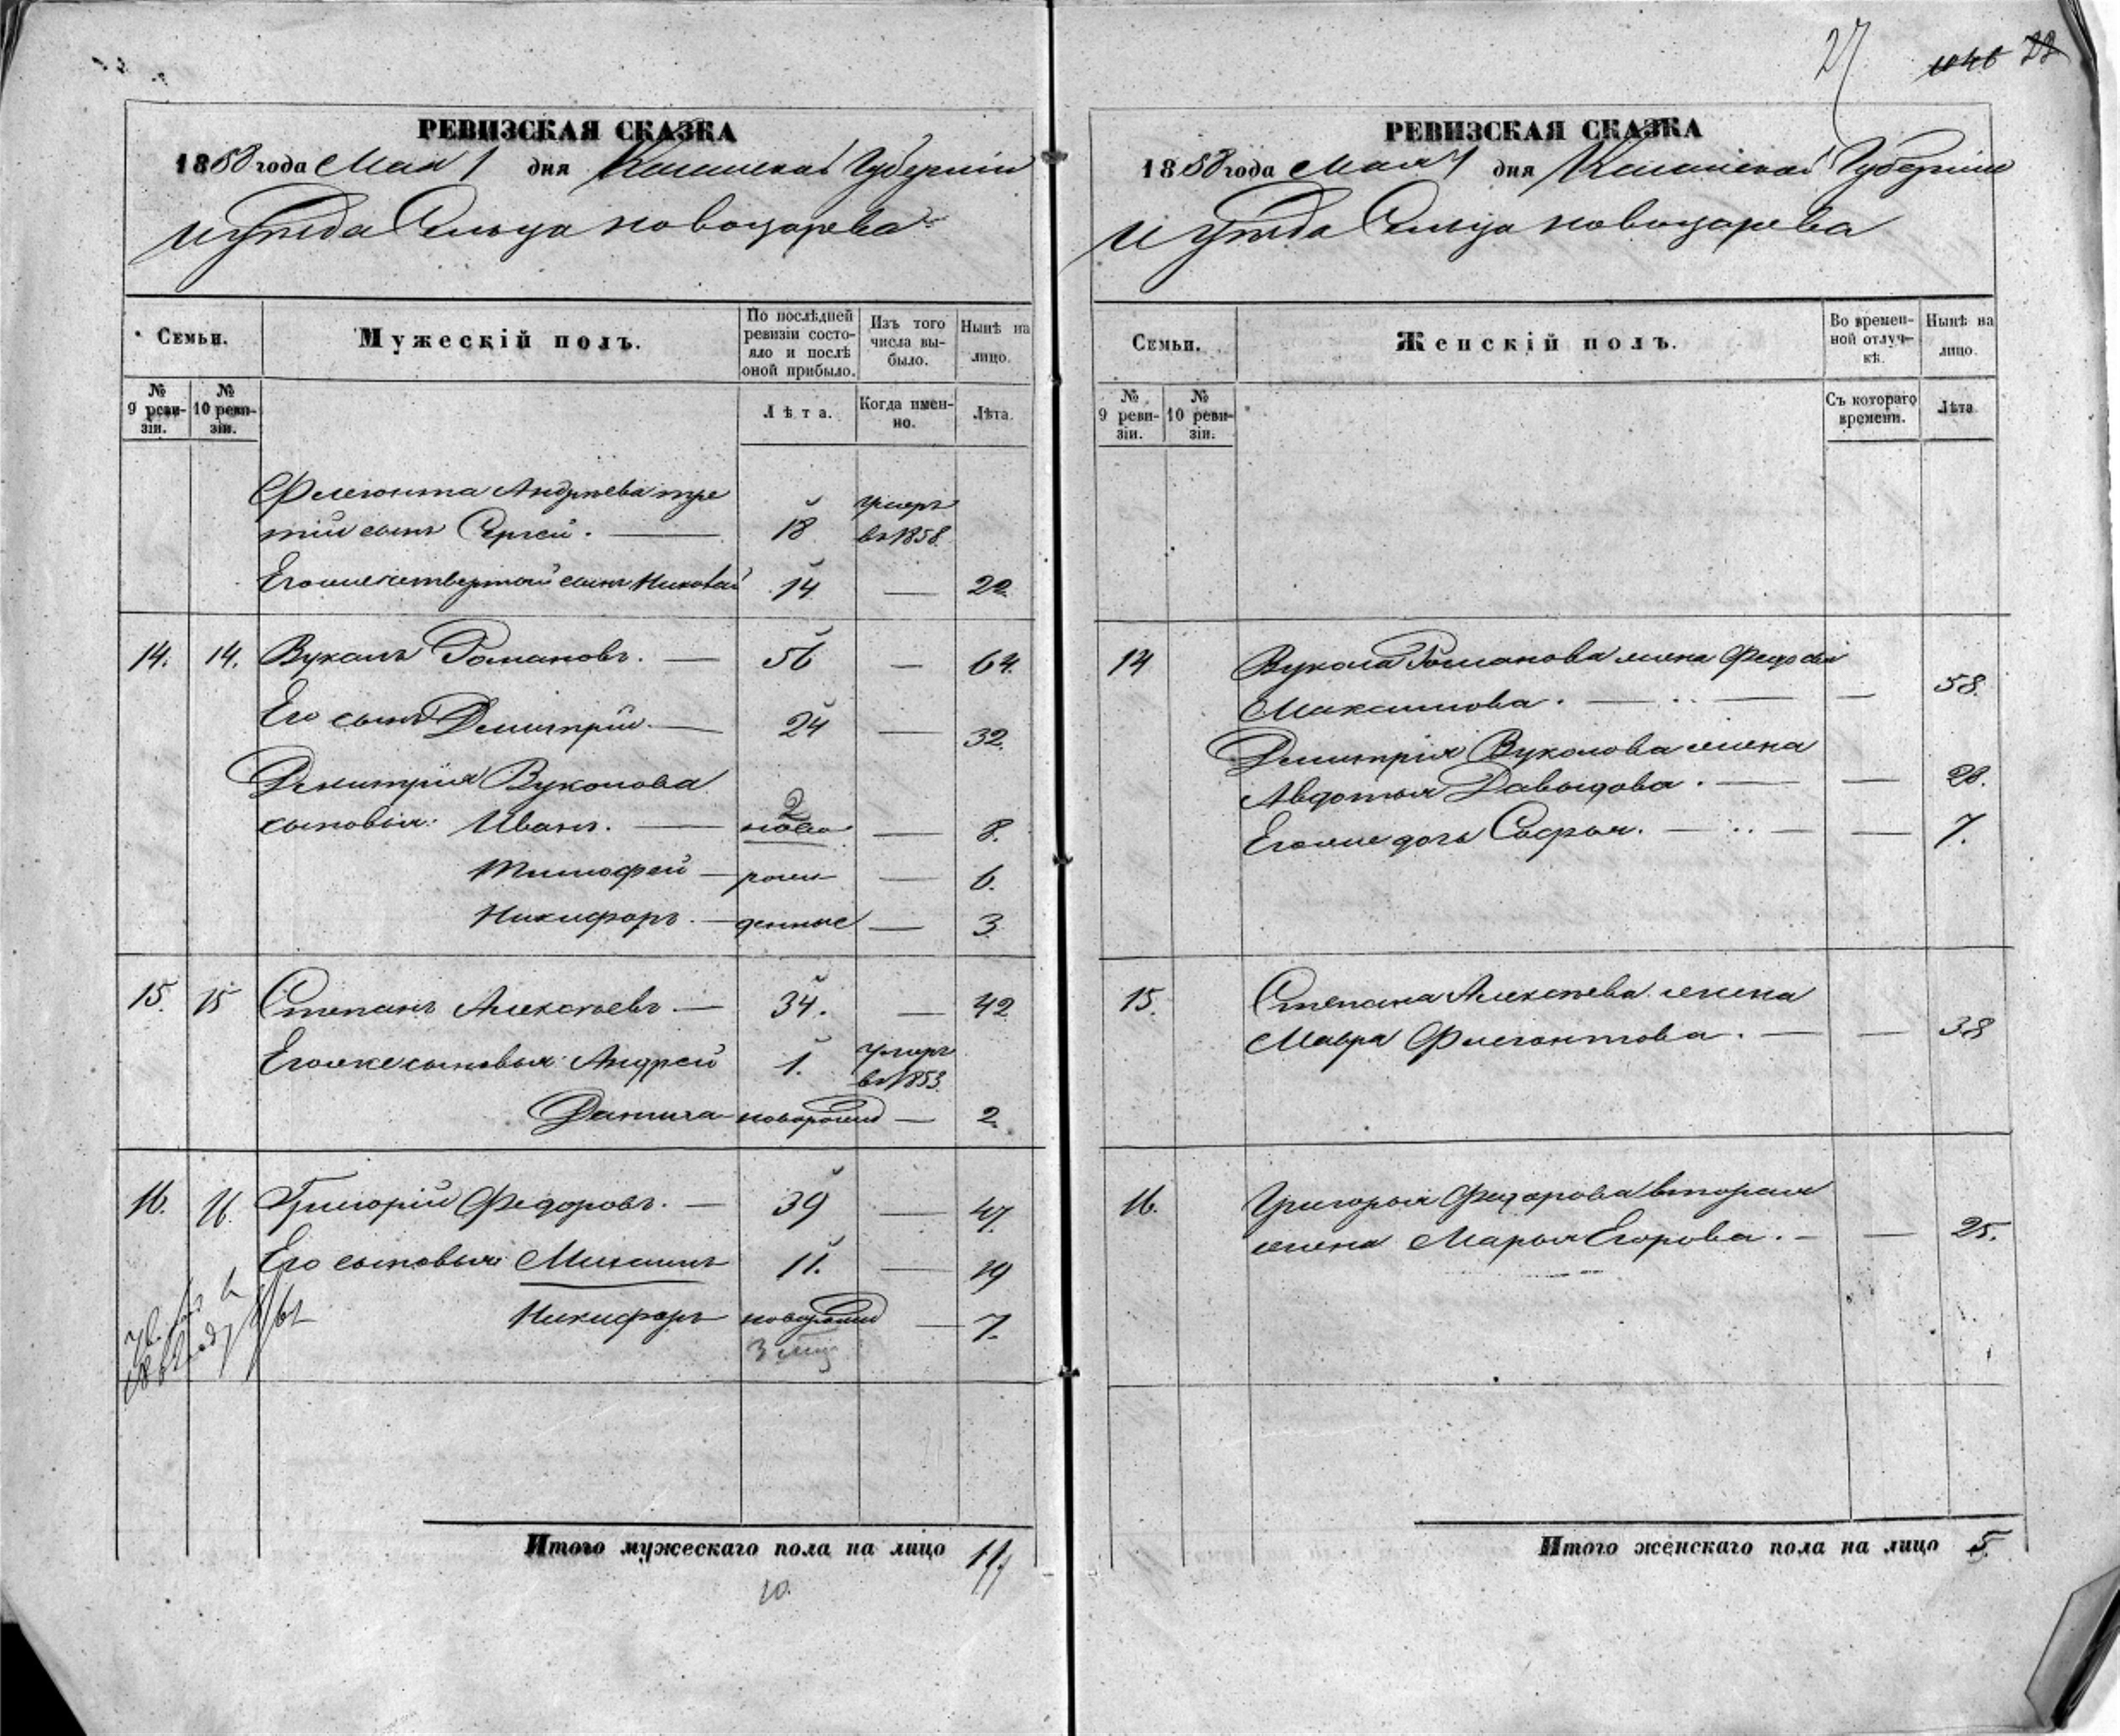 27 1046 22
РЕВИЗСКАЯ СКАЗКА
1858 года Мая 1 дня Казанской Губерніи
и уѣзда Сельца Новоцарева
Семьи. Мужескій полъ. По послѣдней ревизіи состояло и послѣ оной прибыло. Изъ того числа выбыло. Нынѣ на лицо.
№ 9 ревизіи. № 10 ревизіи. Лѣта. Когда именно. Лѣта.
Флегонта Андреева тре
тій сынъ Сергей. — 18 умеръ в 1858.
Его же четвертой сынъ Николай 14 — 22.
14. 14. Вуколъ Романовъ. — 56 — 64.
Его сынъ Дмитрій. — 24 — 32.
Дмитрія Вуколова
сыновья: Иванъ. — 2 ново — 8.
Тимофей — рож — 6.
Никифоръ. — денные — 3.
15. 15 Степанъ Алексѣевъ. — 34. — 42
Его же сыновья: Андрей 1. умеръ в 1853.
Данила — новорожд — 2.
16. 16. Григорій Федоровъ. — 39 — 47.
Его сыновья: Михаилъ 11. — 19
Никифоръ новорожд — 7.
3 мц
Итого мужескаго пола на лицо 11
10.
РЕВИЗСКАЯ СКАЗКА
1858 года Мая 1 дня Казанской Губерніи
и уѣзда Сельца Новоцарева
Семьи. Женскій полъ. Во временной отлучкѣ. Нынѣ на лицо.
№ 9 ревизіи. № 10 ревизіи. Съ котораго времени. Лѣта
14 Вукола Романова жена Федосья
Максимова. — — 58.
Дмитрія Вуколова жена
Авдотья Давыдова. — — 28.
Его же дочь Софья. — — 7.
15. Степана Алексѣева жена
Мавра Флегонтова. — — 38
16. Григорья Федорова вторая
жена Марья Егорова. — — 25.
Итого женскаго пола на лицо 5.